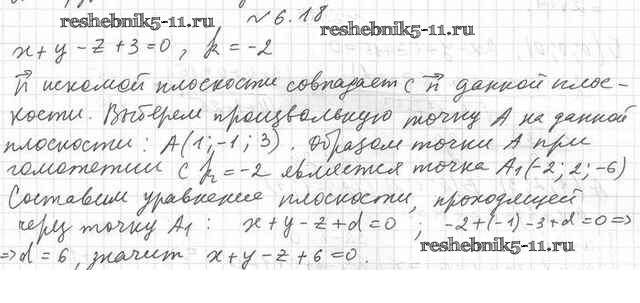 № 6.18
reshebnik5-11.ru reshebnik5-11.ru
x+y-z+3=0, k=-2
n⃗ искомой плоскости совпадает с n⃗ данной плос-
кости. Выберем произвольную точку A на данной
плоскости: A(1;-1;3). Образом точки A при
гомотетии с k=-2 является точка A₁(-2;2;-6)
Составим уравнение плоскости, проходящей
через точку A₁: x+y-z+d=0; -2+(-1)-3+d=0=>
=>d=6, значит x+y-z+6=0.
reshebnik5-11.ru